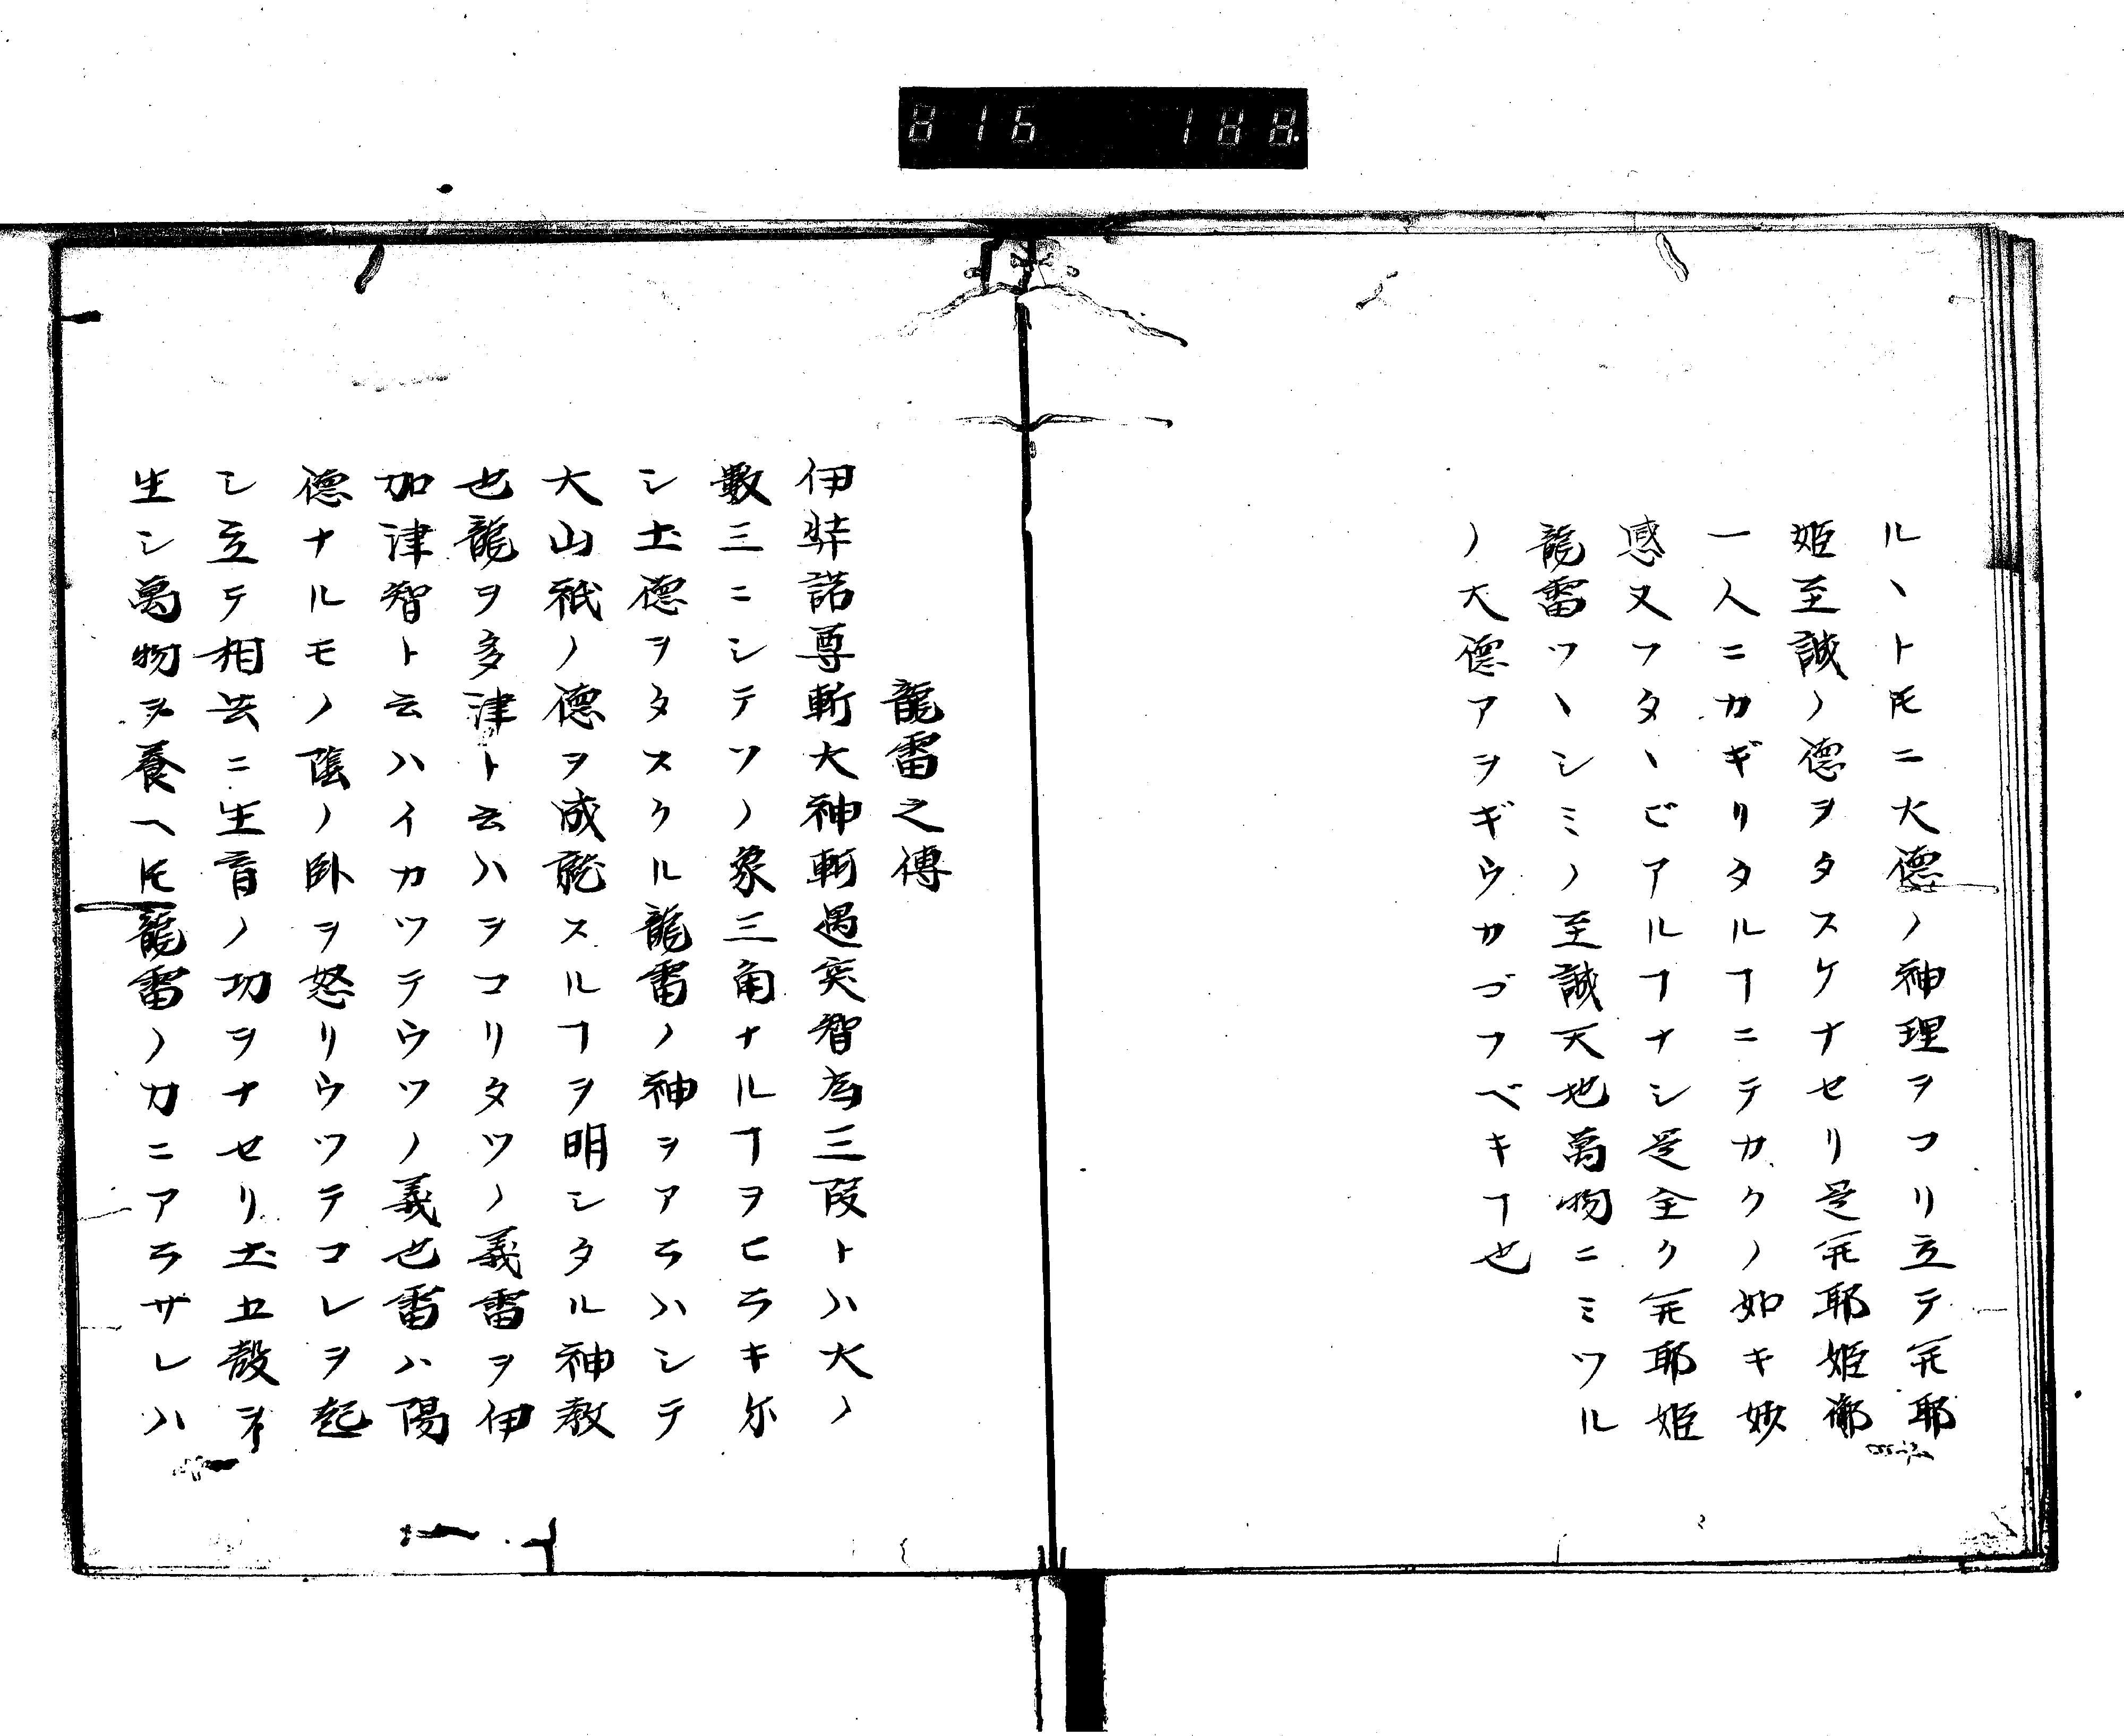 816 188
ルヽト𪜈ニ大德ノ神理ヲコリ立テ開耶
姫至誠ノ德ヲタスケナセリ是開耶姫御
一人ニカギリタルヿニテカクノ如キ妙
感又フタヽビアルヿナシ是全ク開耶姫
龍雷ツヽシミノ至誠天地萬物ニミツル
ノ大德アヲギウカゴフベキヿ也
龍雷之傳
伊弉諾尊斬大神軻遇突智為三段トハ大ノ
數三ニシテソノ象三角ナルヿヲヒラキ尓
シ土德ヲタスクル龍雷ノ神ヲアラハシテ
大山祇ノ德ヲ成就スルヿヲ明シタル神教
也龍ヲ多津ト云ハヲコリタツノ義雷ヲ伊
加津智ト云ハイカツテウツノ義也雷ハ陽
德ナルモノ陰ノ卧ヲ怒リウツテコレヲ起
シ立テ相共ニ生育ノ功ヲナセリ土五穀ヲ
生シ萬物ヲ養ヘ𪜈龍雷ノ力ニアラサレハ